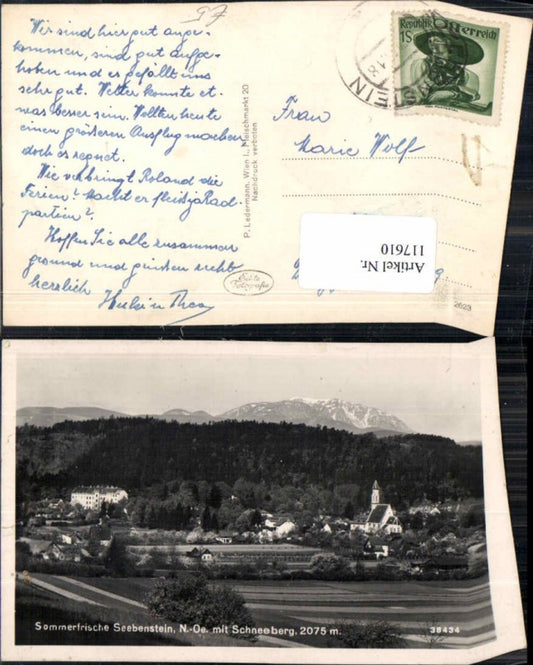 Wir sind hier gut ange-
kommen, sind gut aufge-
hoben und es gefällt uns
sehr gut. Wetter könnte et-
was besser sein. Wollten heute
einen größeren Ausflug machen
doch es regnet.
Wie verbringt Roland die
Ferien? Macht er fleißig Rad-
partien?
Hoffen Sie alle zusammen
gesund und grüssen recht
herzlich
P. Ledermann, Wien I., Fleischmarkt 20
Nachdruck verboten
Echte
Fotografie
Republik
Österreich
1S
STEIN
Frau
Marie Wolf
Artikel Nr.
117610
2623
Sommerfrische Seebenstein, N.-Oe. mit Schneeberg, 2075 m.
38434